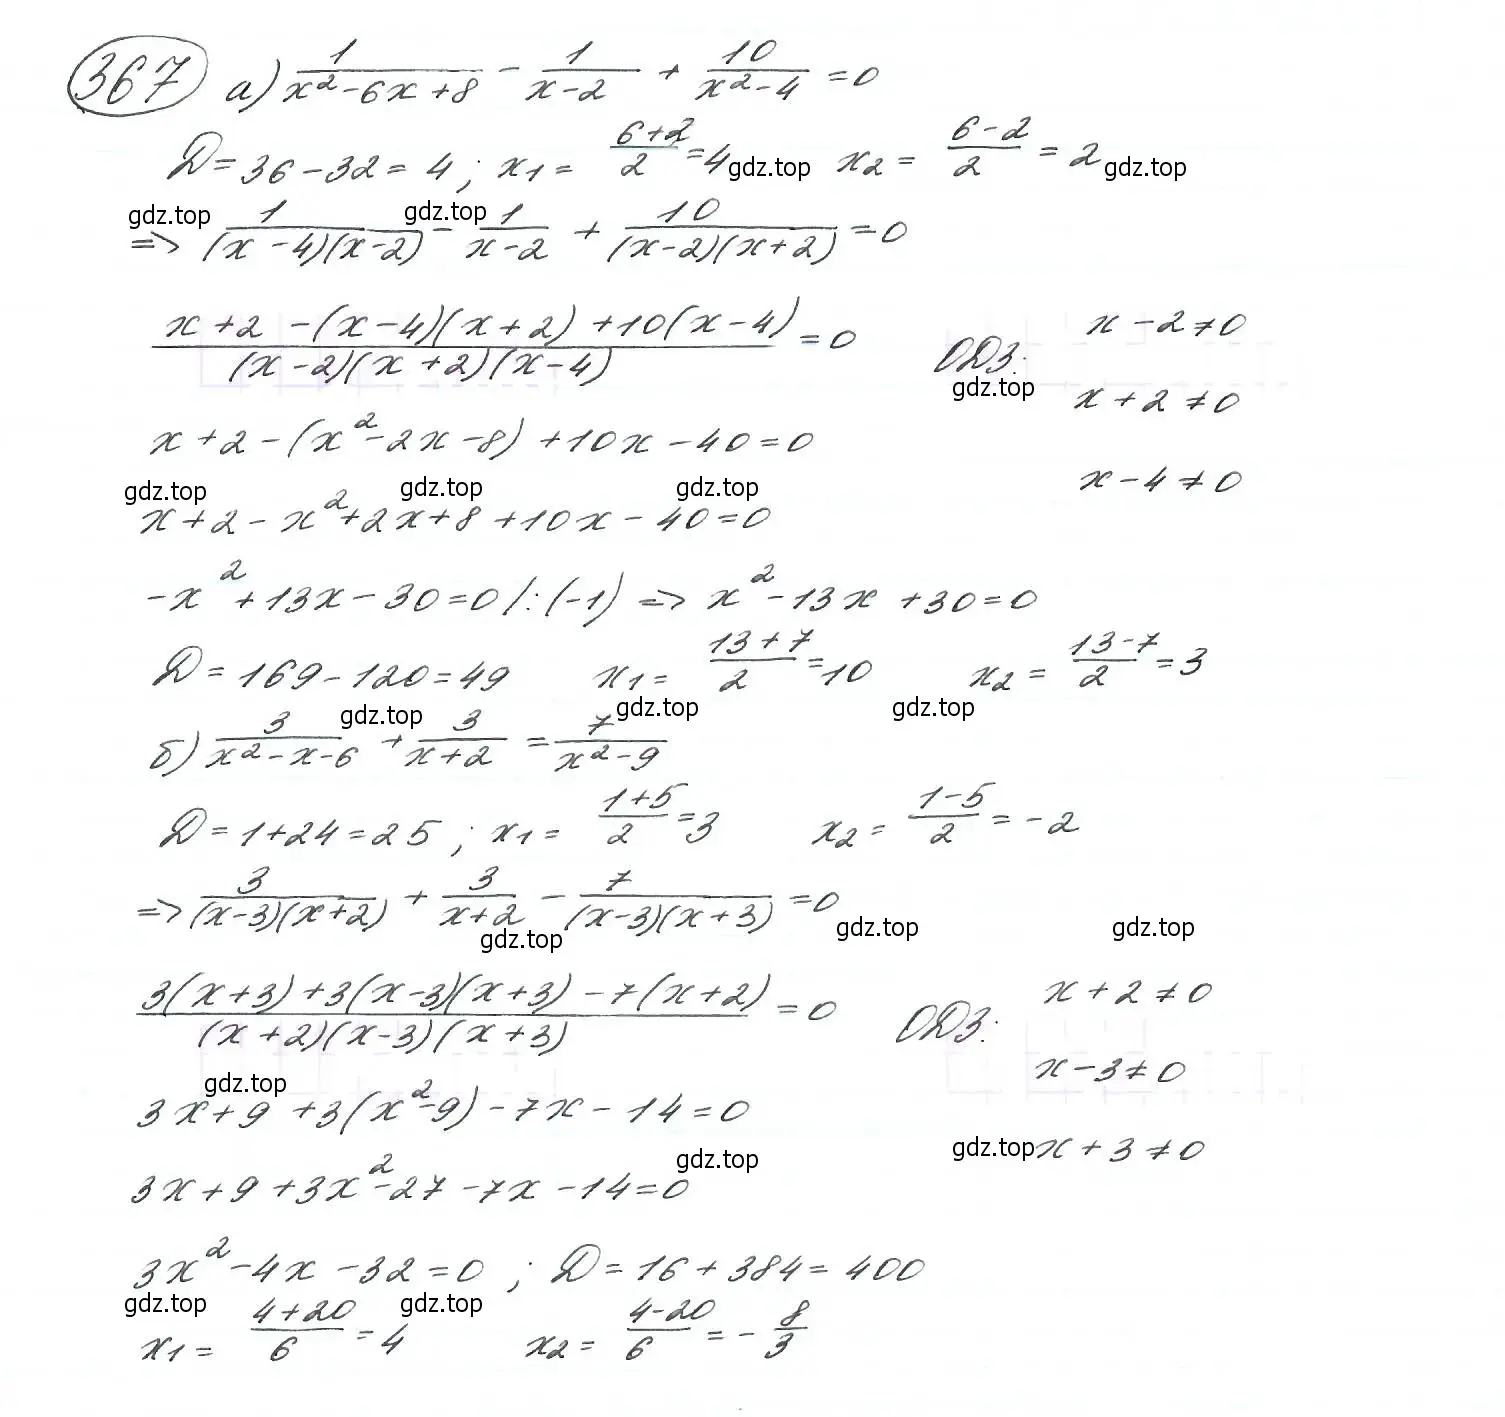 367 а) 1/(x²-6x+8) - 1/(x-2) + 10/(x²-4) = 0
D = 36-32 = 4; x1 = (6+2)/2 = 4 gdz.top x2 = (6-2)/2 = 2 gdz.top
gdz.top gdz.top
=> 1/((x-4)(x-2)) - 1/(x-2) + 10/((x-2)(x+2)) = 0
(x+2 -(x-4)(x+2) +10(x-4))/((x-2)(x+2)(x-4)) = 0 ОДЗ: x-2≠0
gdz.top x+2≠0
x+2-(x²-2x-8)+10x-40=0
x-4≠0
gdz.top gdz.top gdz.top
x+2-x²+2x+8+10x-40=0
-x²+13x-30=0 /:(-1) => x²-13x+30=0
D=169-120=49 x1 = (13+7)/2 = 10 x2 = (13-7)/2 = 3
gdz.top gdz.top gdz.top
б) 3/(x²-x-6) + 3/(x+2) = 7/(x²-9)
D=1+24=25; x1 = (1+5)/2 = 3 x2 = (1-5)/2 = -2
=> 3/((x-3)(x+2)) + 3/(x+2) - 7/((x-3)(x+3)) = 0
gdz.top gdz.top gdz.top
(3(x+3)+3(x-3)(x+3)-7(x+2))/((x+2)(x-3)(x+3)) = 0 ОДЗ: x+2≠0
x-3≠0
gdz.top
3x+9+3(x²-9)-7x-14=0
gdz.top x+3≠0
gdz.top
3x+9+3x²-27-7x-14=0
3x²-4x-32=0; D=16+384=400
gdz.top gdz.top
x1 = (4+20)/6 = 4 x2 = (4-20)/6 = -8/3